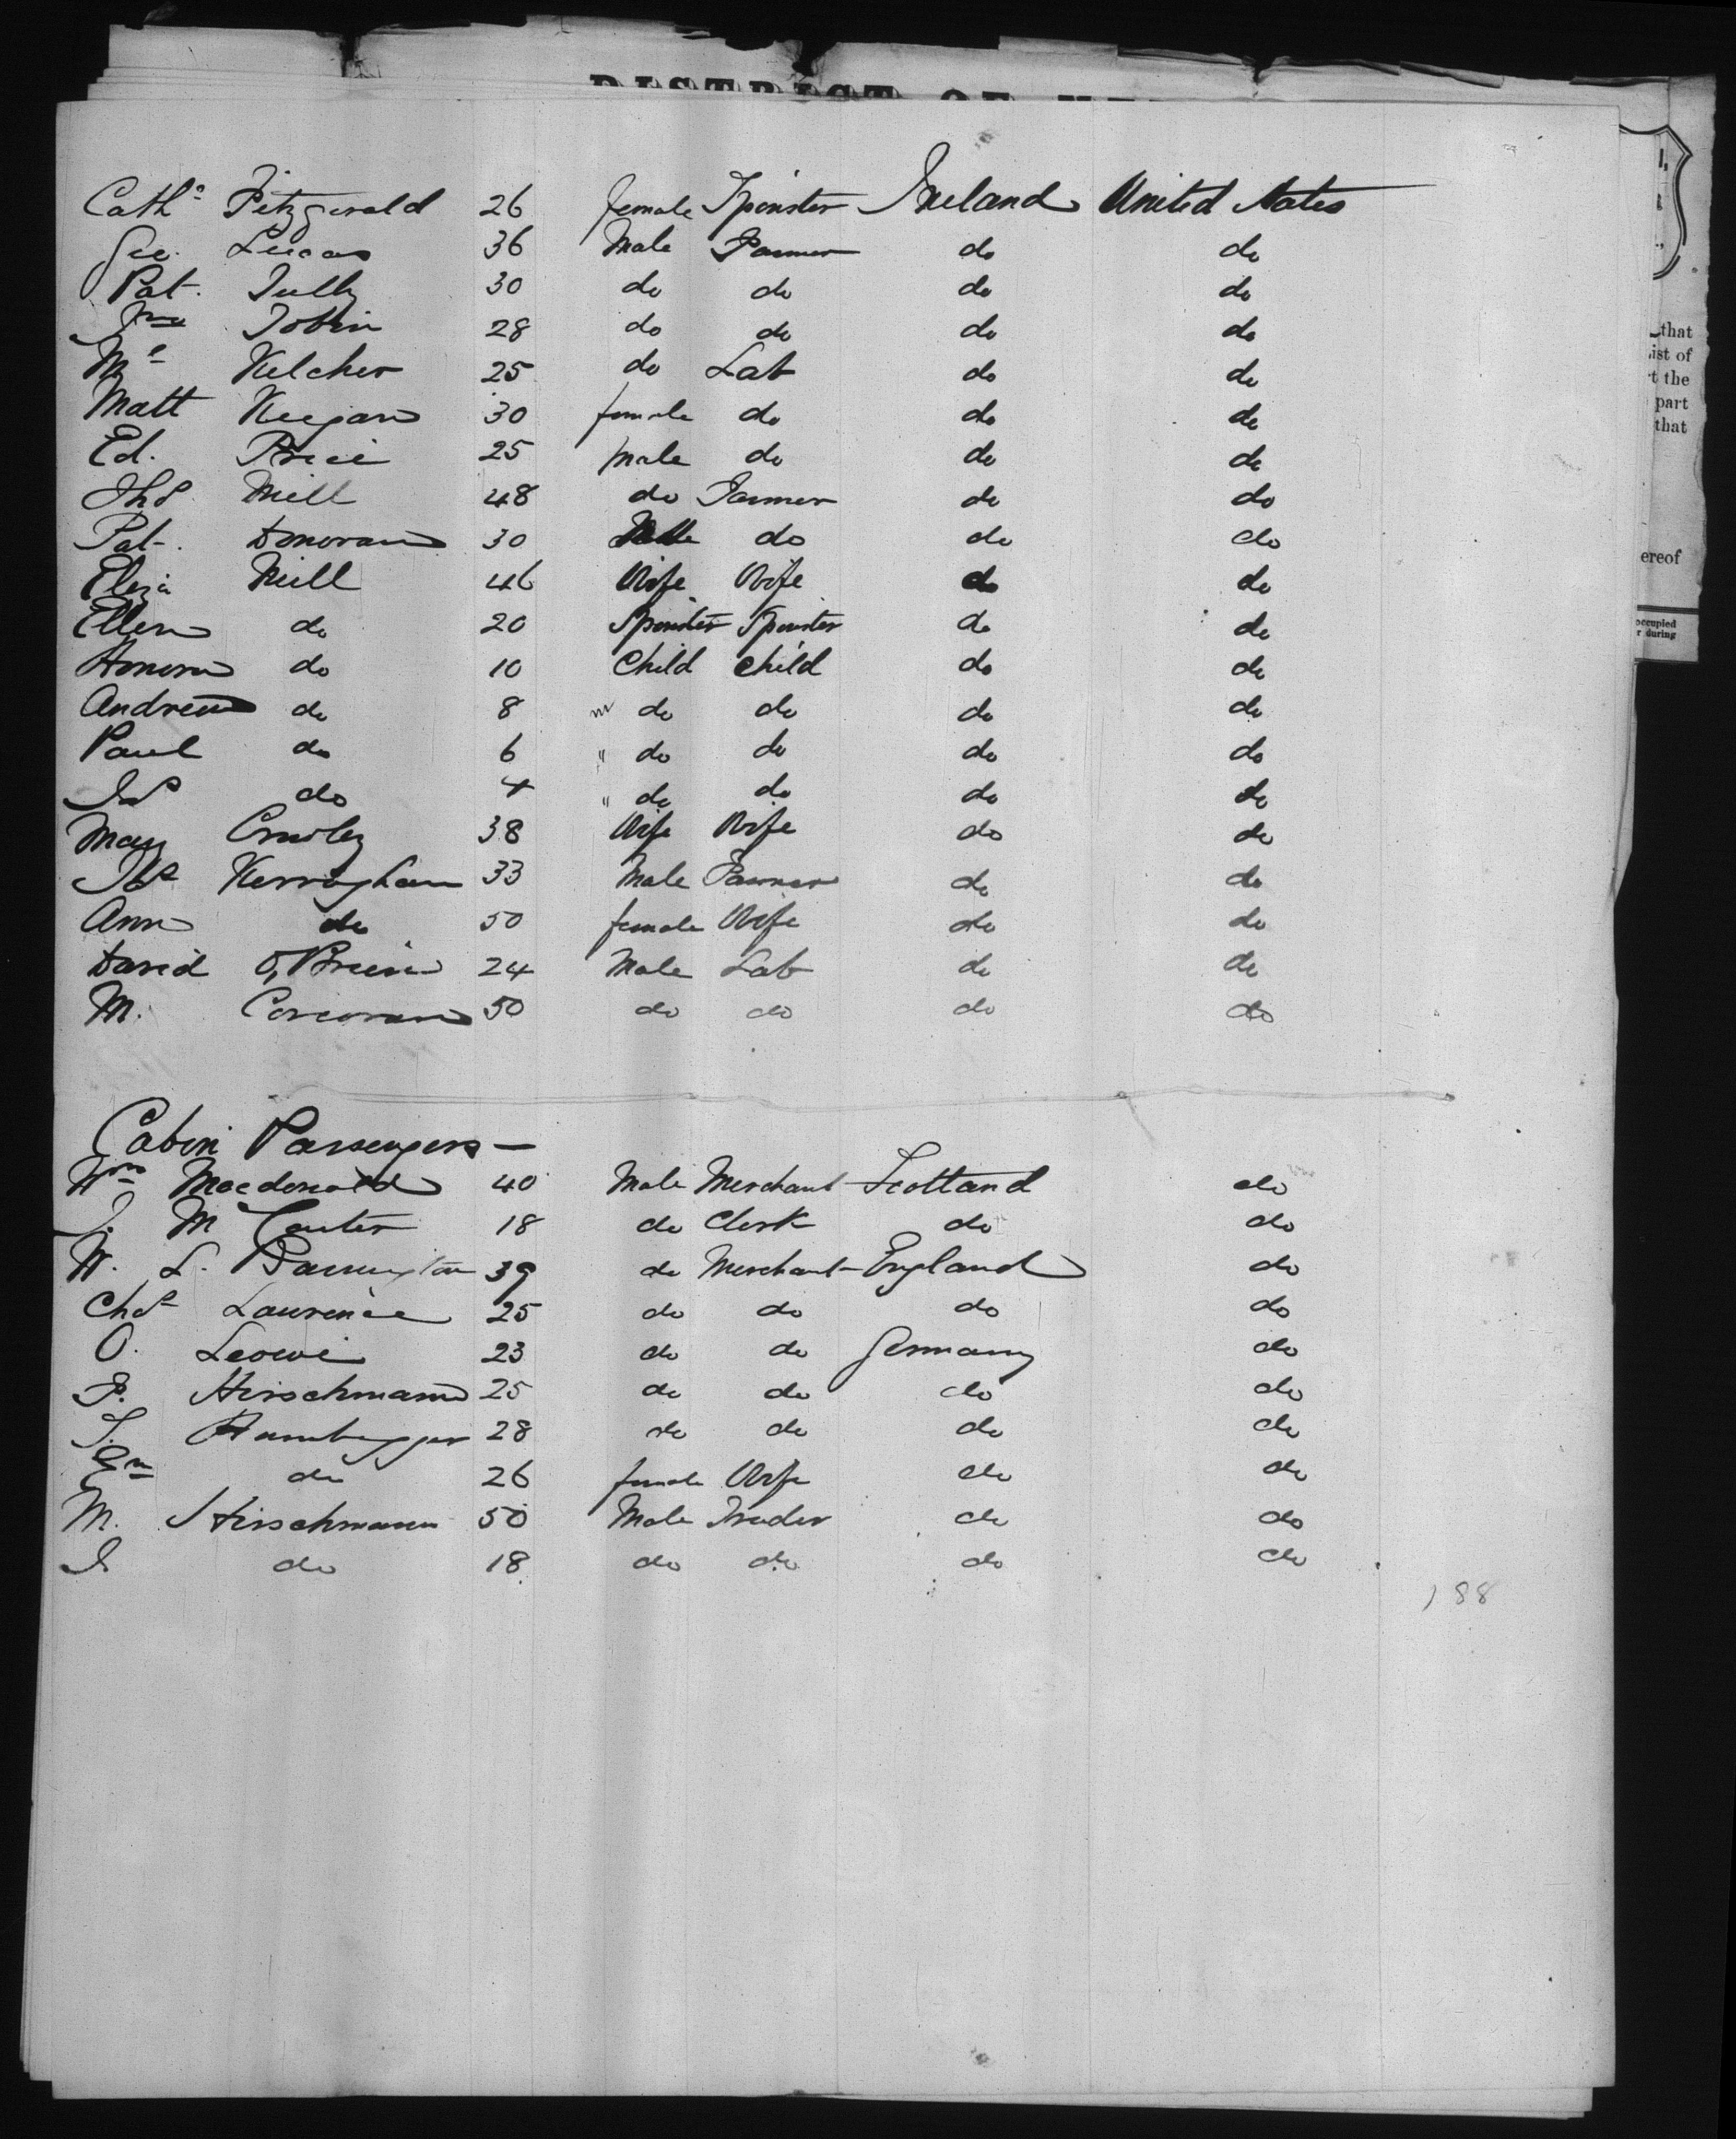 DISTRICT OF
Cath^e Fitzgerald 26 female Spinster Ireland United States
Geo. Lucas 36 Male Farmer do do
Pat. Tully 30 do do do do
Jno Tobin 28 do do do do
M^l Kelcher 25 do Lab do do
Matt Keegan 30 female do do do
Ed. Price 25 male do do do
Thos Mill 48 do Farmer do do
Pat. Donovan 30 Male do do do
Eliza Mill 46 Wife Wife do do
Ellen do 20 Spinster Spinster do do
Honora do 10 Child child do do
Andrew do 8 m do do do do
Paul do 6 " do do do do
Js do 4 " do do do do
Mary Crowley 38 Wife Wife do do
Kerraghan 33 Male Farmer do do
Ann do 50 female Wife do do
David O,Brien 24 Male Lab do do
M. Corcoran 50 do do do do
Cabin Passengers —
Wm Macdonald 40 Male Merchant Scotland do
J. Mc 18 do Clerk do do
W. L. Barrington 39 do Merchant England do
Chas Laurence 25 do do do do
O. Leowi 23 do do Germany do
P. Hirschmann 25 do do do do
S. 28 do do do do
do 26 female Wife do do
M. Hirschmann 50 Male Trader do do
J do 18 do do do do
188
that
ist of
t the
part
that
ereof
occupied
r during